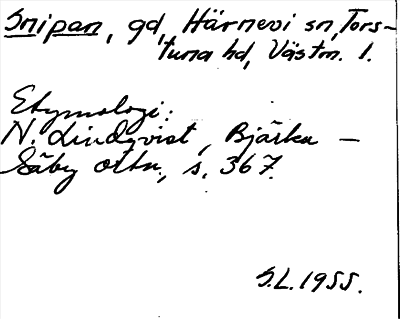 Snipan, gd, Härnevi sn, Tors-
tuna hd, Västm. l.
Etymologi:
N. Lindqvist, Bjärka-
Säby ortn., s. 367.
S.L. 1955.